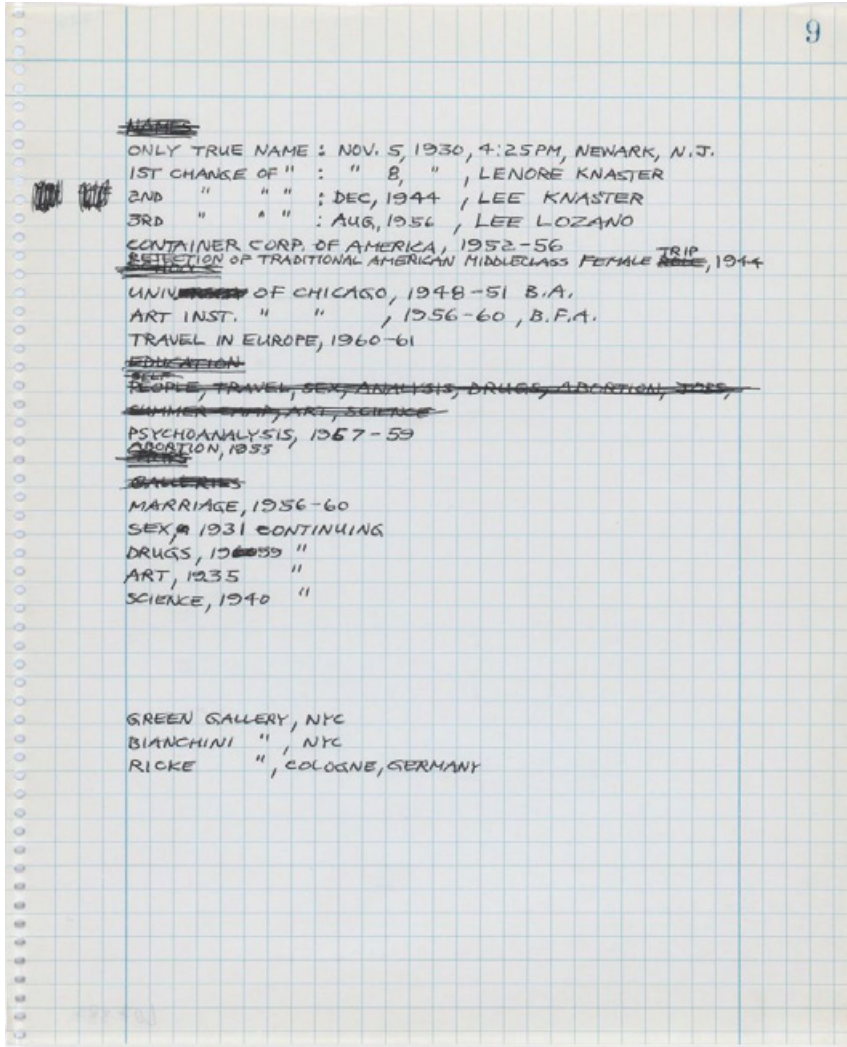 9
NAMES
ONLY TRUE NAME : NOV. 5, 1930, 4:25PM, NEWARK, N.J.
1ST CHANGE OF " : " 8, " , LENORE KNASTER
2ND " " " : DEC, 1944 , LEE KNASTER
3RD " " " : AUG, 1956 , LEE LOZANO
CONTAINER CORP. OF AMERICA, 1952-56
REJECTION OF TRADITIONAL AMERICAN MIDDLECLASS FEMALE ROLE TRIP, 1944
SCHOOLS
UNIV OF CHICAGO, 1948-51 B.A.
ART INST. " " , 1956-60, B.F.A.
TRAVEL IN EUROPE, 1960-61
EDUCATION
SELF
PEOPLE, TRAVEL, SEX, ANALYSIS, DRUGS, ABORTION, JOBS,
SUMMER CAMP, ART, SCIENCE
PSYCHOANALYSIS, 1957-59
ABORTION, 1955
GALLERIES
MARRIAGE, 1956-60
SEX, 1931 CONTINUING
DRUGS, 1959 "
ART, 1935 "
SCIENCE, 1940 "
GREEN GALLERY, NYC
BIANCHINI " , NYC
RICKE " , COLOGNE, GERMANY